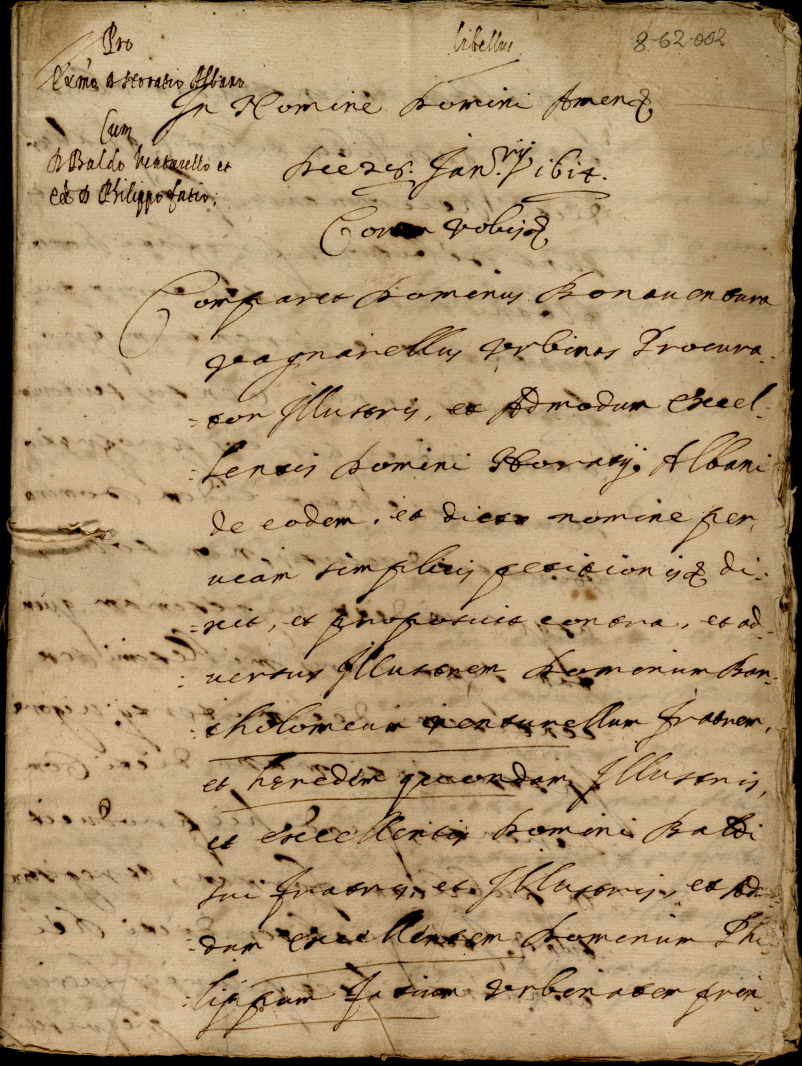 Pro
Ex.mo D. Horatio Albano
Cum
D. Baldo Venturello et
Ex. D. Philippo fatio;
libellus
8-62-002
In Nomine Domini Amen
Die 28. Jan.rij 1614.
Coram vobis
Comparet Dominus Bonauentura
Vagnarellus Vrbinas Procura-
tor Illustris, et Admodum Excel-
lentis Domini Horatij Albani
de eodem, et dicto nomine per
uiam simplicis petitionis di-
xit, et proposuit contra, et ad-
uersus Illustrem Dominum Bar-
tholomeum Venturellum fratrem,
et heredem quondam Illustris,
et excellentis Domini Baldi
sui fratris, et Illustris, et Ad-
dum excellentem Dominum Phi-
lippum fatium Vrbinatem prin-